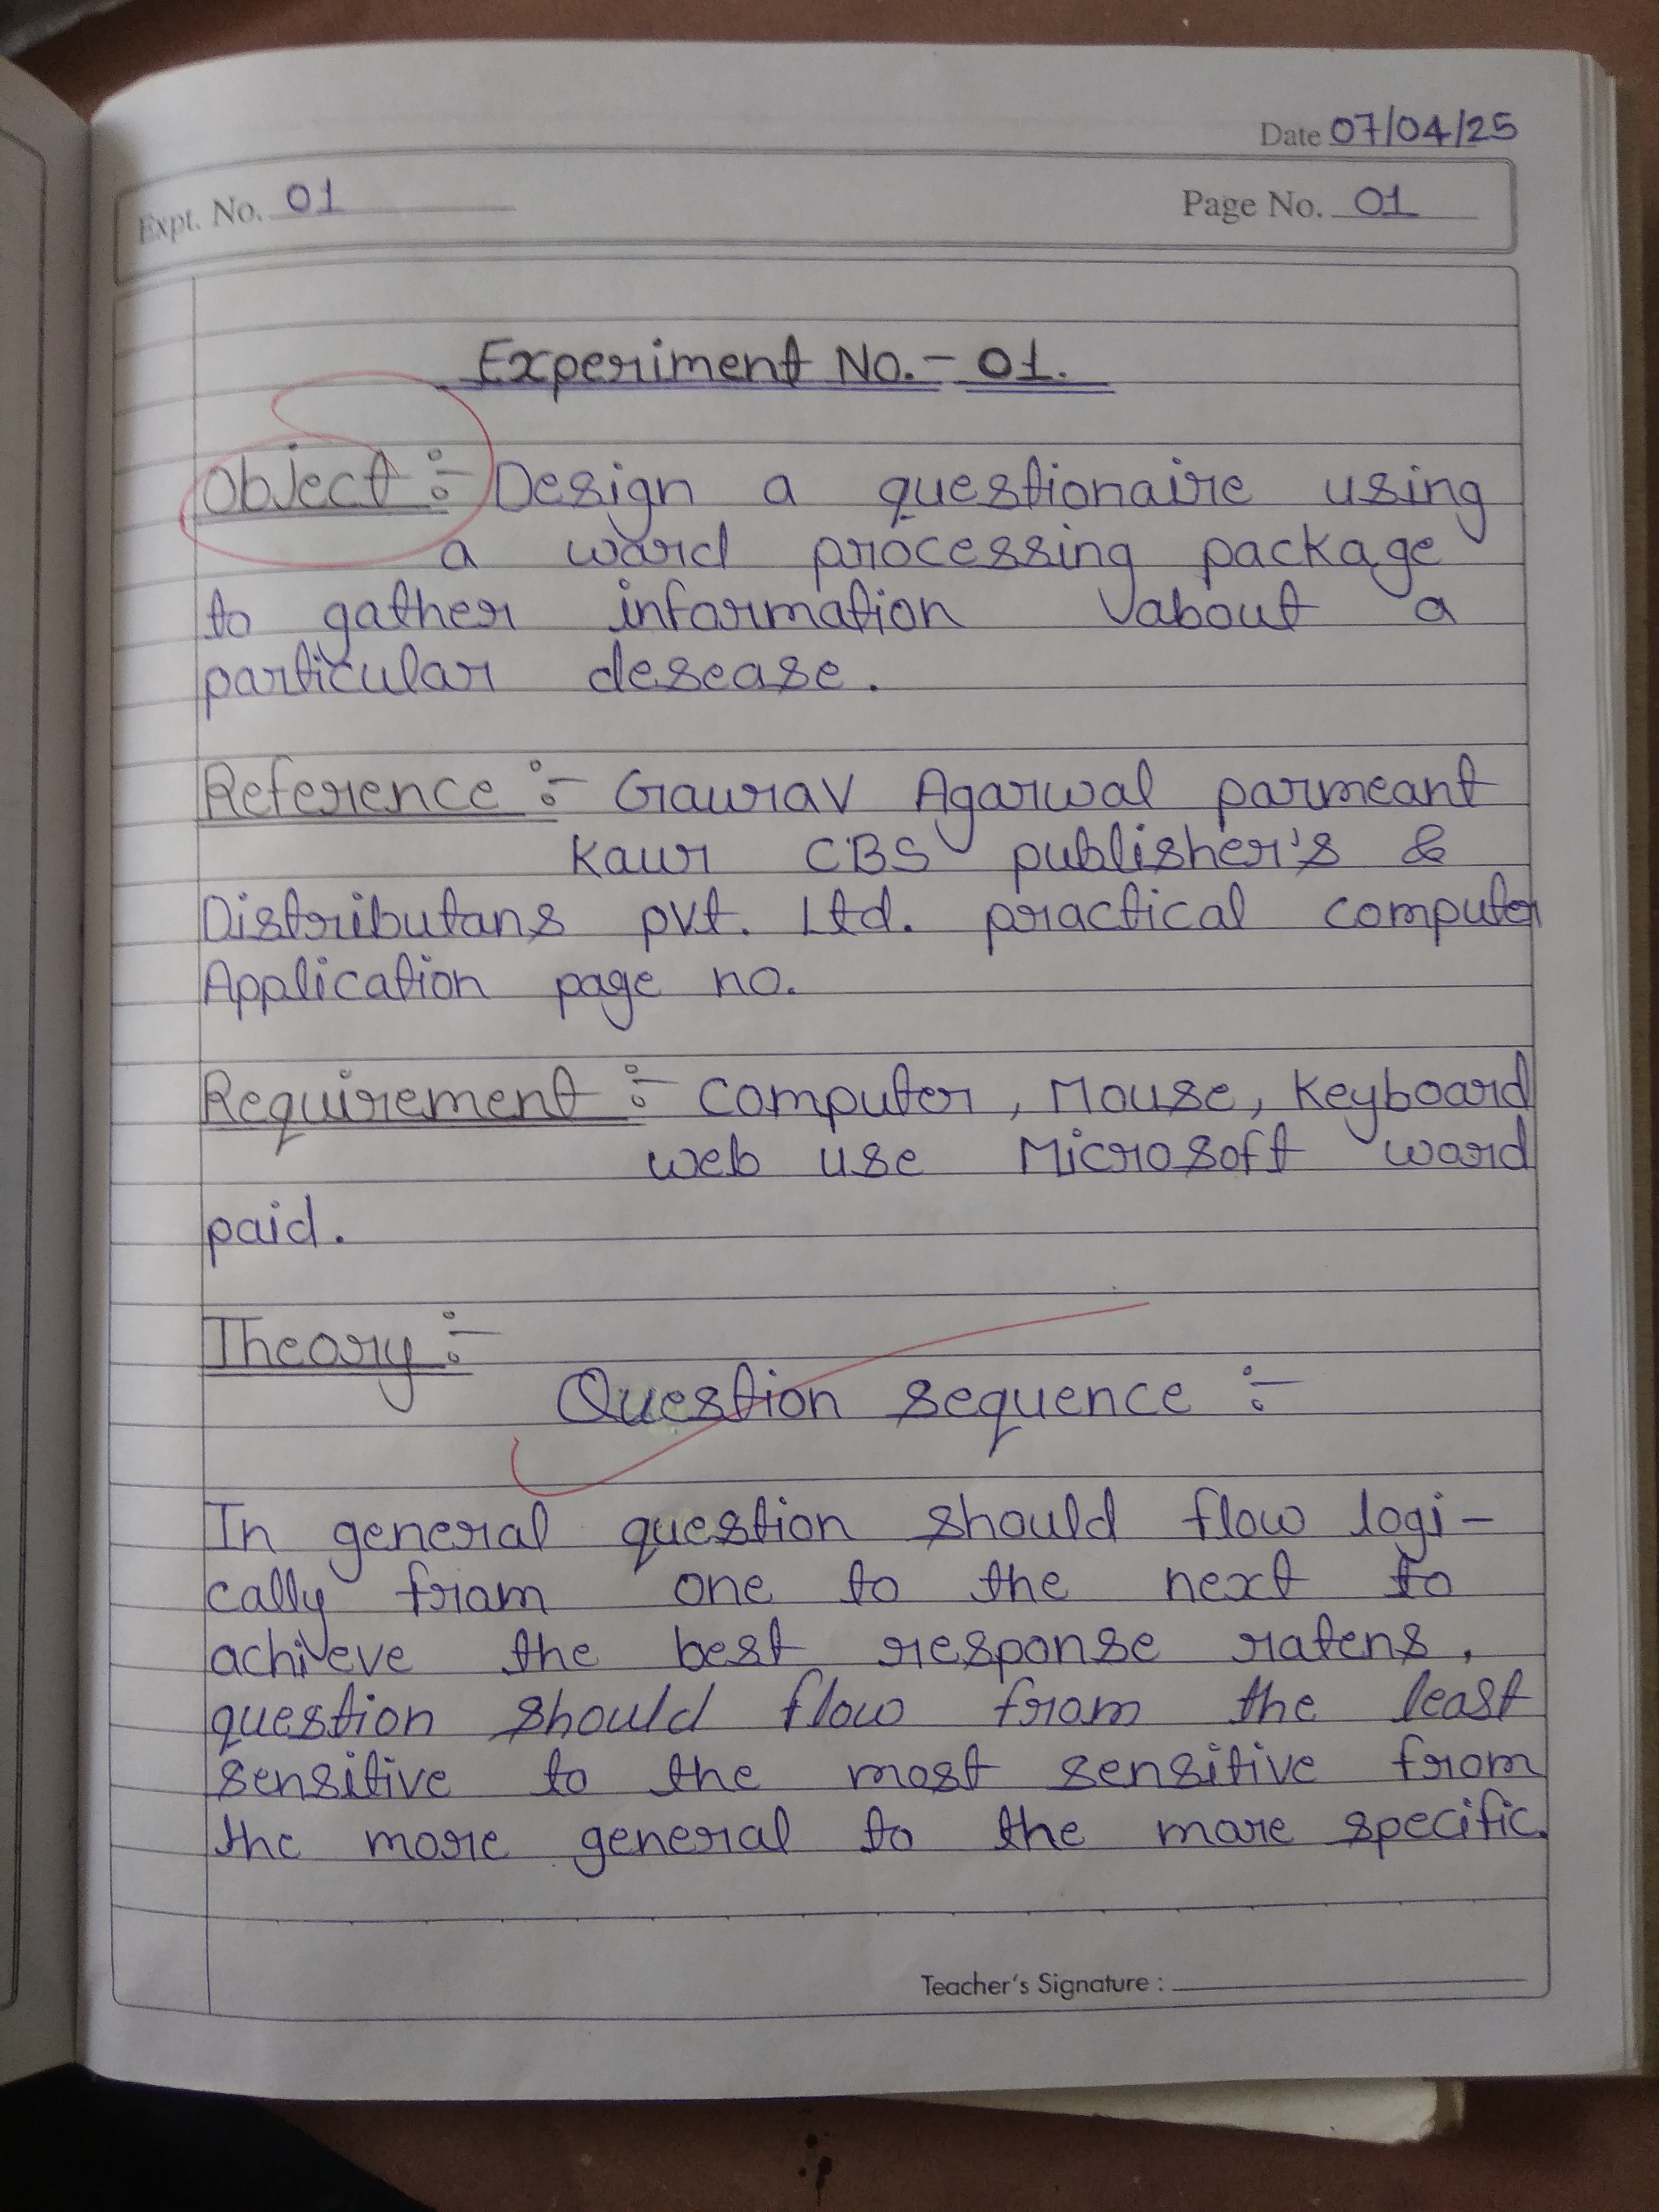 Date 07/04/25
Expt. No. 01 Page No. 01
Experiment No.- 01.
Object :- Design a questionaire using
a word processing package
to gather information about a
particular desease.
Reference :- Gaurav Agarwal parmeant
Kaur CBS publisher's &
Distributans pvt. Ltd. practical computer
Application page no.
Requirement :- computer, Mouse, Keyboard
web use Microsoft word
paid.
Theory :-
Question sequence :-
In general question should flow logi-
cally from one to the next to
achieve the best response ratens,
question should flow from the least
sensitive to the most sensitive from
the more general to the more specific.
Teacher's Signature :